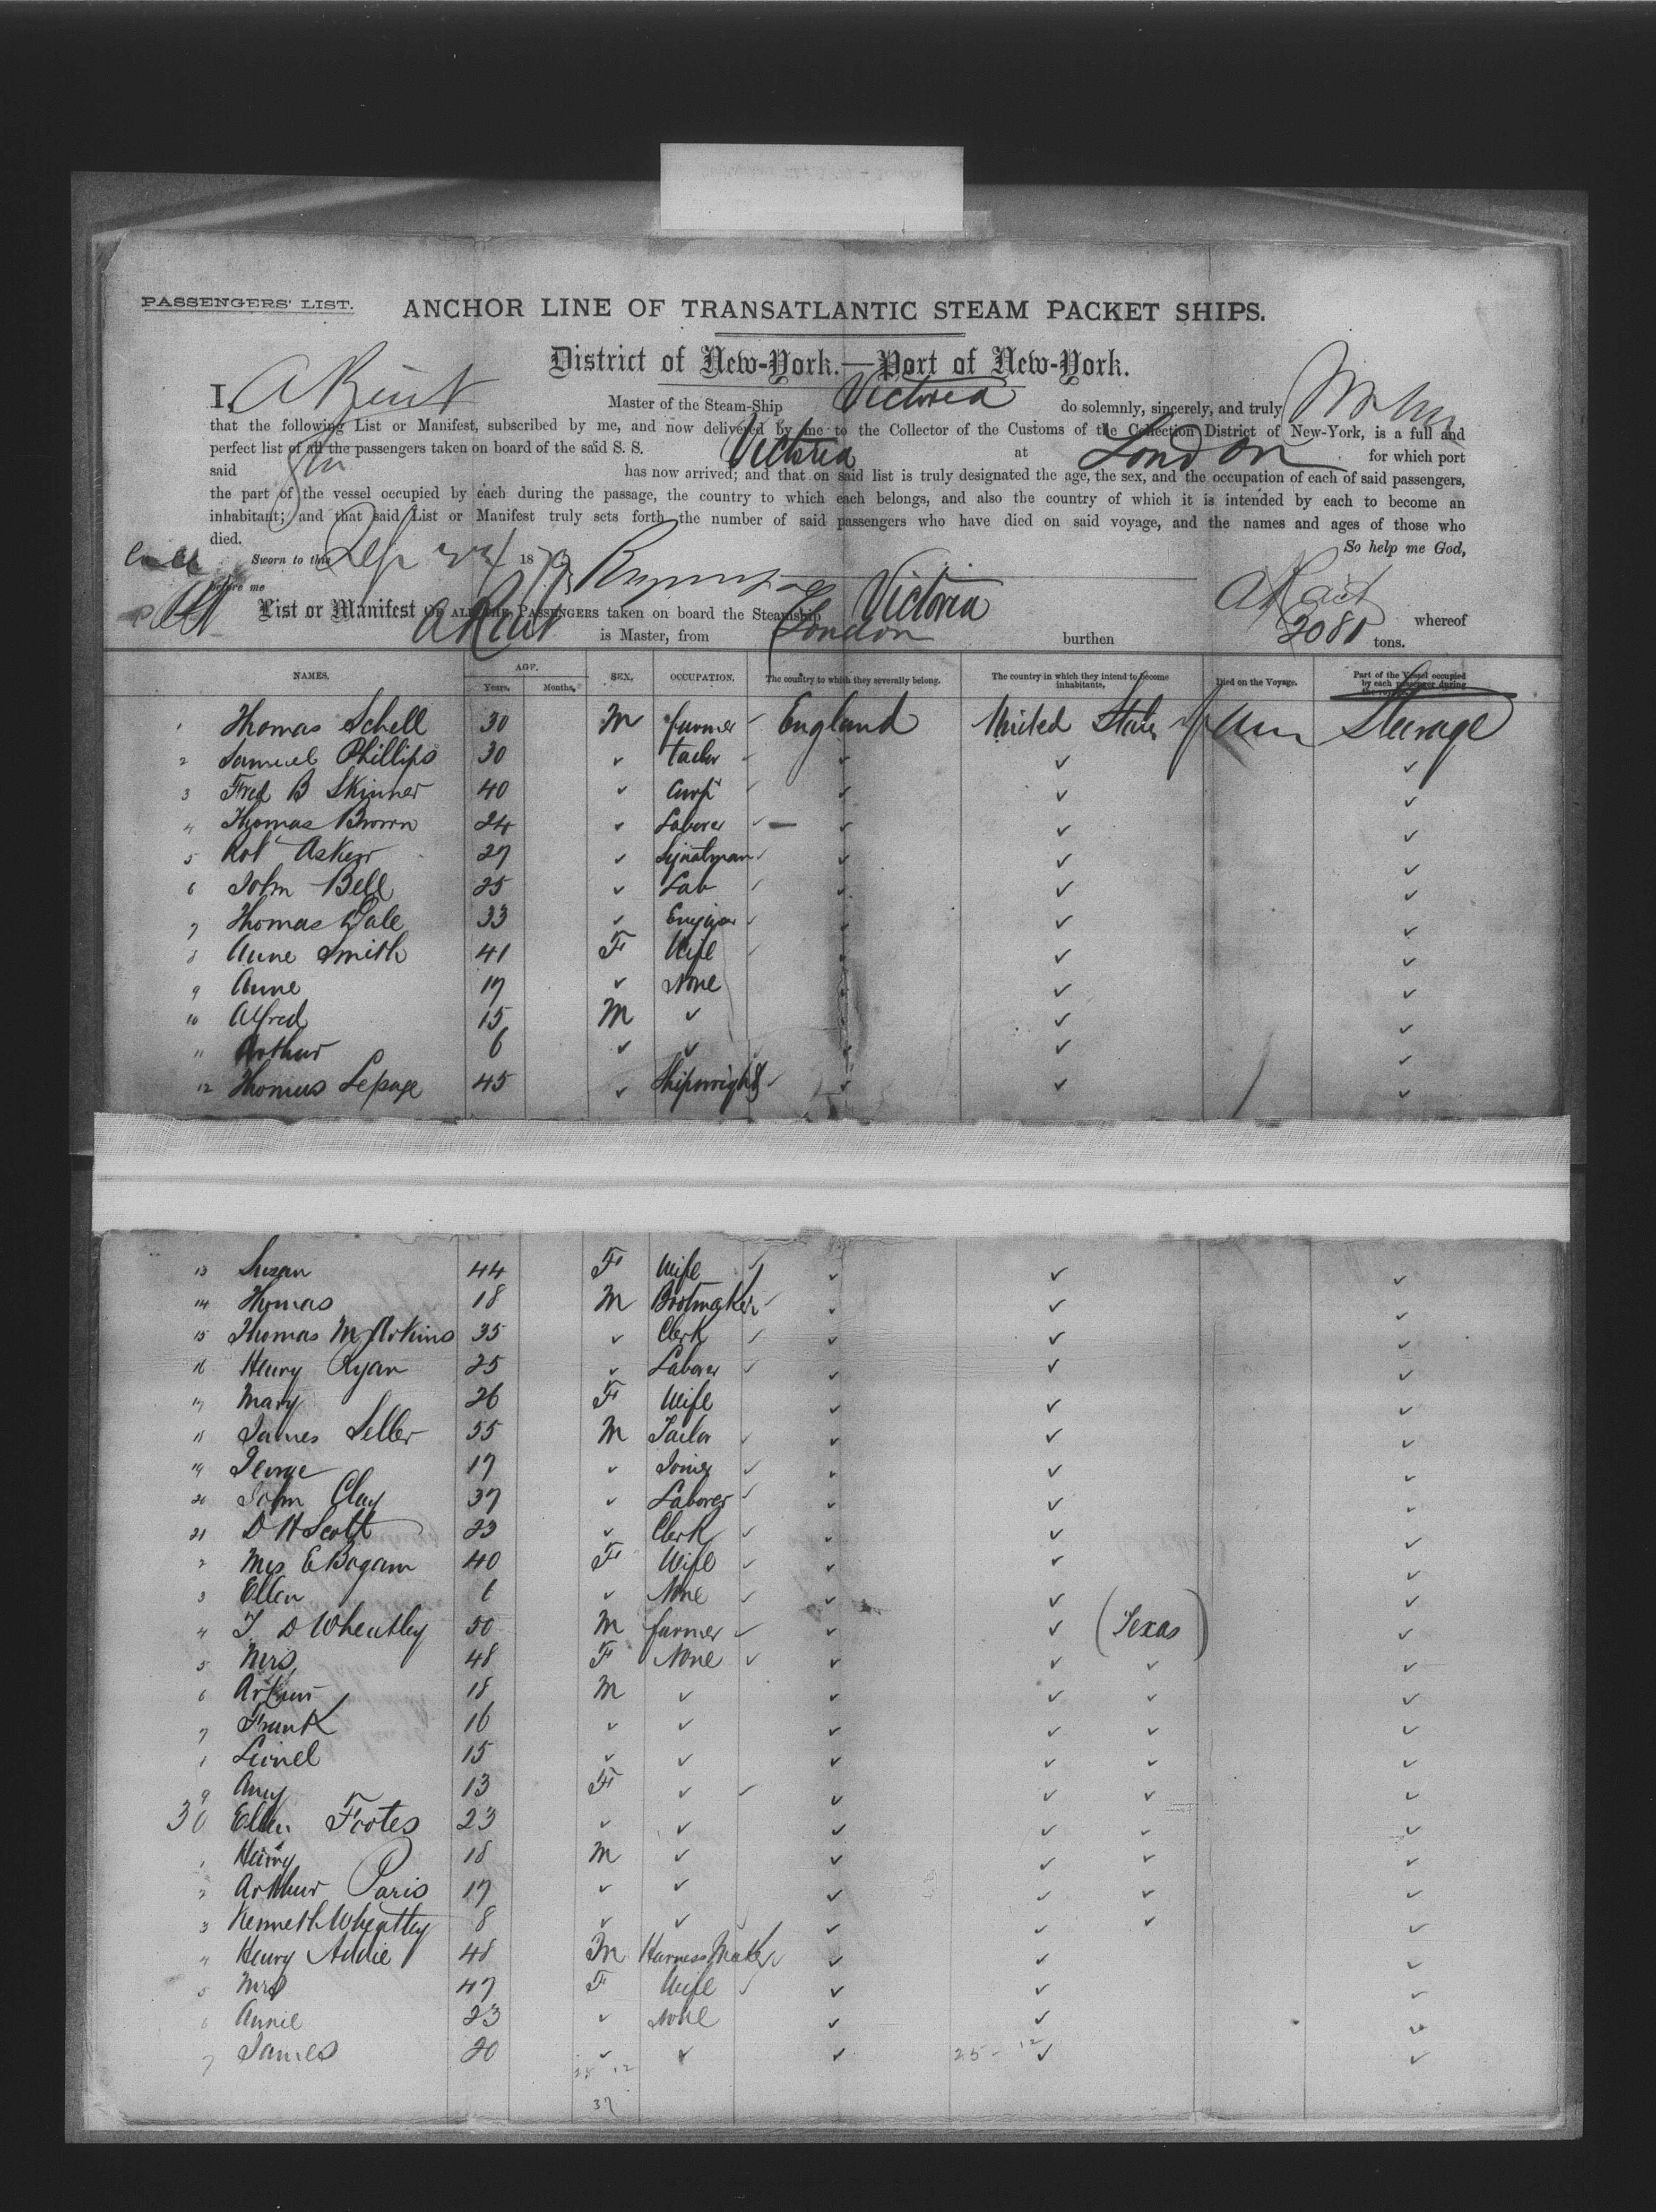 PASSENGERS' LIST.
ANCHOR LINE OF TRANSATLANTIC STEAM PACKET SHIPS.
District of New-York.—Port of New-York.
I, Master of the Steam-Ship Victoria do solemnly, sincerely, and truly
that the following List or Manifest, subscribed by me, and now delivered by me to the Collector of the Customs of the Collection District of New-York, is a full and
perfect list of all the passengers taken on board of the said S. S. Victoria at London for which port
said has now arrived; and that on said list is truly designated the age, the sex, and the occupation of each of said passengers,
the part of the vessel occupied by each during the passage, the country to which each belongs, and also the country of which it is intended by each to become an
inhabitant; and that said List or Manifest truly sets forth the number of said passengers who have died on said voyage, and the names and ages of those who
died.
So help me God,
Sworn to this Sep 187
before me
List or Manifest OF ALL THE PASSENGERS taken on board the Steamship Victoria whereof
is Master, from London burthen 2081 tons.
NAMES. AGE. Years. Months. SEX. OCCUPATION. The country to which they severally belong. The country in which they intend to become inhabitants. Died on the Voyage. Part of the Vessel occupied by each passenger during the voyage.
1 Thomas Schell 30 M farmer ✓ England United States of Am Steerage
2 Samuel Phillips 30 ✓ tailor ✓ ✓ ✓ ✓
3 Fred B Skinner 40 ✓ Carp ✓ ✓ ✓ ✓
4 Thomas Brown 24 ✓ Laborer ✓ — ✓ ✓ ✓
5 Robt Asken 27 ✓ Signalman ✓ ✓ ✓ ✓
6 John Bell 25 ✓ Lab ✓ ✓ ✓ ✓
7 Thomas Gale 33 ✓ ✓ ✓ ✓ ✓
8 Anne Smith 41 F Wife ✓ ✓ ✓ ✓
9 Anne 17 ✓ None ✓ ✓ ✓
10 Alfred 15 M ✓ ✓ ✓ ✓
11 Arthur 6 ✓ ✓ ✓ ✓ ✓
12 Thomas Lepage 45 ✓ Shipwright ✓ ✓ ✓ ✓
13 Susan 44 F Wife ✓ ✓ ✓ ✓
14 Thomas 18 M Bootmaker ✓ ✓ ✓ ✓
15 Thomas M 35 ✓ Clerk ✓ ✓ ✓ ✓
16 Henry Ryan 25 ✓ Laborer ✓ ✓ ✓ ✓
17 Mary 26 F Wife ✓ ✓ ✓
18 James Seller 55 M Tailor ✓ ✓ ✓ ✓
19 George 17 ✓ Joiner ✓ ✓ ✓ ✓
20 John Clay 37 ✓ Laborer ✓ ✓ ✓ ✓
21 D H Scott 23 ✓ Clerk ✓ ✓ ✓ ✓
2 Mrs E Bogam 40 F Wife ✓ ✓ ✓ ✓
3 Ellen 6 ✓ None ✓ ✓ ✓ ✓
4 T D Wheatley 50 M farmer ✓ ✓ ✓ (Texas) ✓
5 Mrs 48 F None ✓ ✓ ✓ ✓ ✓
6 Arthur 18 M ✓ ✓ ✓ ✓ ✓
7 Frank 16 ✓ ✓ ✓ ✓ ✓ ✓
8 Lionel 15 ✓ ✓ ✓ ✓ ✓ ✓
9 Amy 13 F ✓ ✓ ✓ ✓ ✓ ✓
30 Ellen Footes 23 ✓ ✓ ✓ ✓ ✓ ✓
1 Henry 18 M ✓ ✓ ✓ ✓ ✓
2 Arthur Paris 17 ✓ ✓ ✓ ✓ ✓ ✓
3 Kenneth Wheatley 8 ✓ ✓ ✓ ✓ ✓ ✓
4 Henry Addie 48 M Harness Maker ✓ ✓ ✓ ✓
5 Mrs 47 F Wife ✓ ✓ ✓ ✓
6 Annie 23 ✓ None ✓ ✓ ✓
7 James 20 ✓ ✓ ✓ 25-12 ✓ ✓
25 12
37